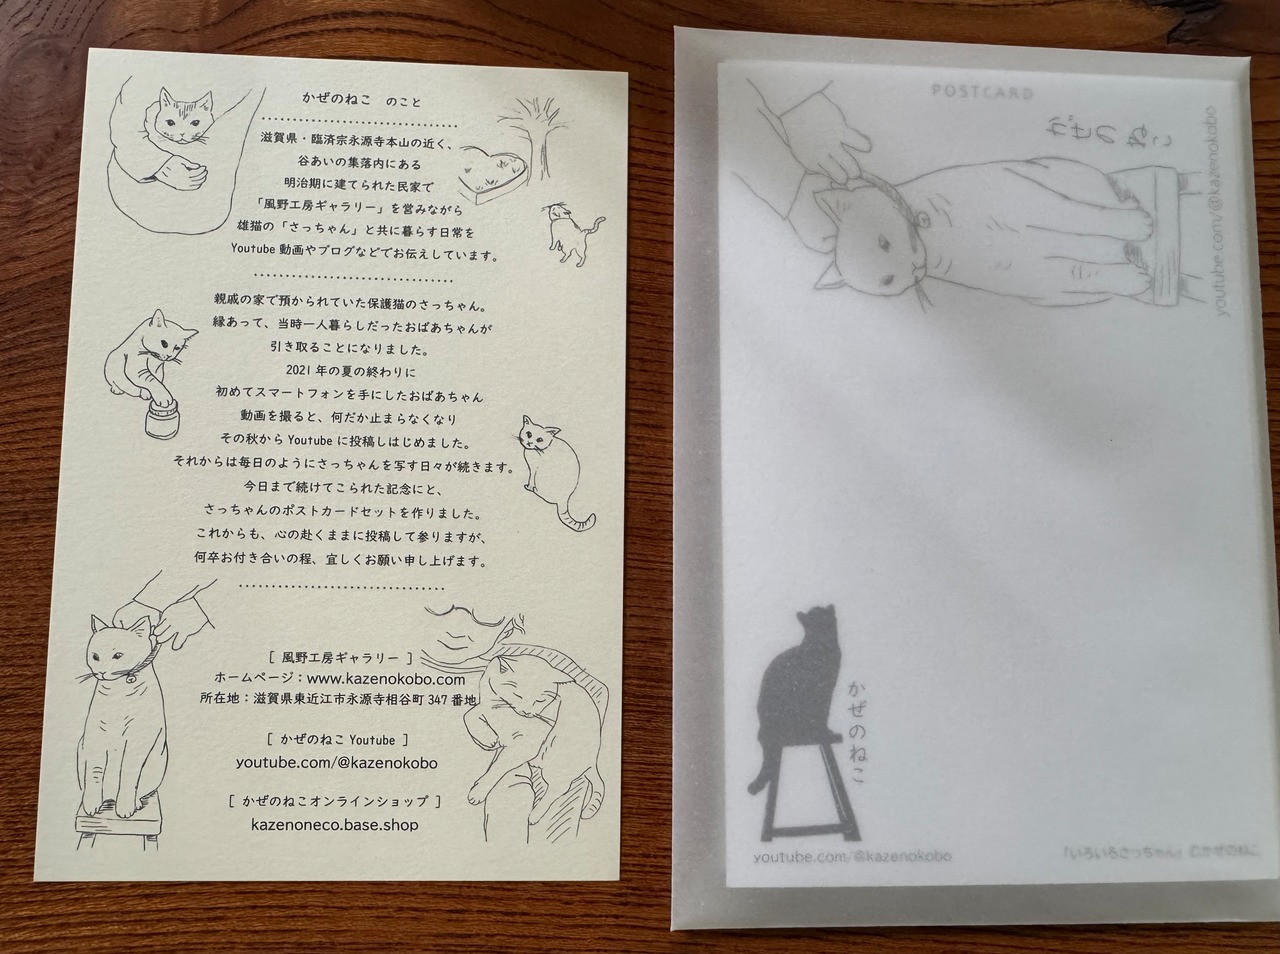 かぜのねこ　のこと
滋賀県・臨済宗永源寺本山の近く、
谷あいの集落内にある
明治期に建てられた民家で
「風野工房ギャラリー」を営みながら
雄猫の「さっちゃん」と共に暮らす日常を
Youtube 動画やブログなどでお伝えしています。
親戚の家で預かられていた保護猫のさっちゃん。
縁あって、当時一人暮らしだったおばあちゃんが
引き取ることになりました。
2021 年の夏の終わりに
初めてスマートフォンを手にしたおばあちゃん
動画を撮ると、何だか止まらなくなり
その秋から Youtube に投稿しはじめました。
それからは毎日のようにさっちゃんを写す日々が続きます。
今日まで続けてこられた記念にと、
さっちゃんのポストカードセットを作りました。
これからも、心の赴くままに投稿して参りますが、
何卒お付き合いの程、宜しくお願い申し上げます。
[ 風野工房ギャラリー ]
ホームページ：www.kazenokobo.com
所在地：滋賀県東近江市永源寺相谷町 347 番地
[ かぜのねこ Youtube ]
youtube.com/@kazenokobo
[ かぜのねこオンラインショップ ]
kazenoneco.base.shop
POSTCARD
かぜのねこ
youtube.com/@kazenokobo
かぜのねこ
youtube.com/@kazenokobo
「いろいろさっちゃん」 ©かぜのねこ